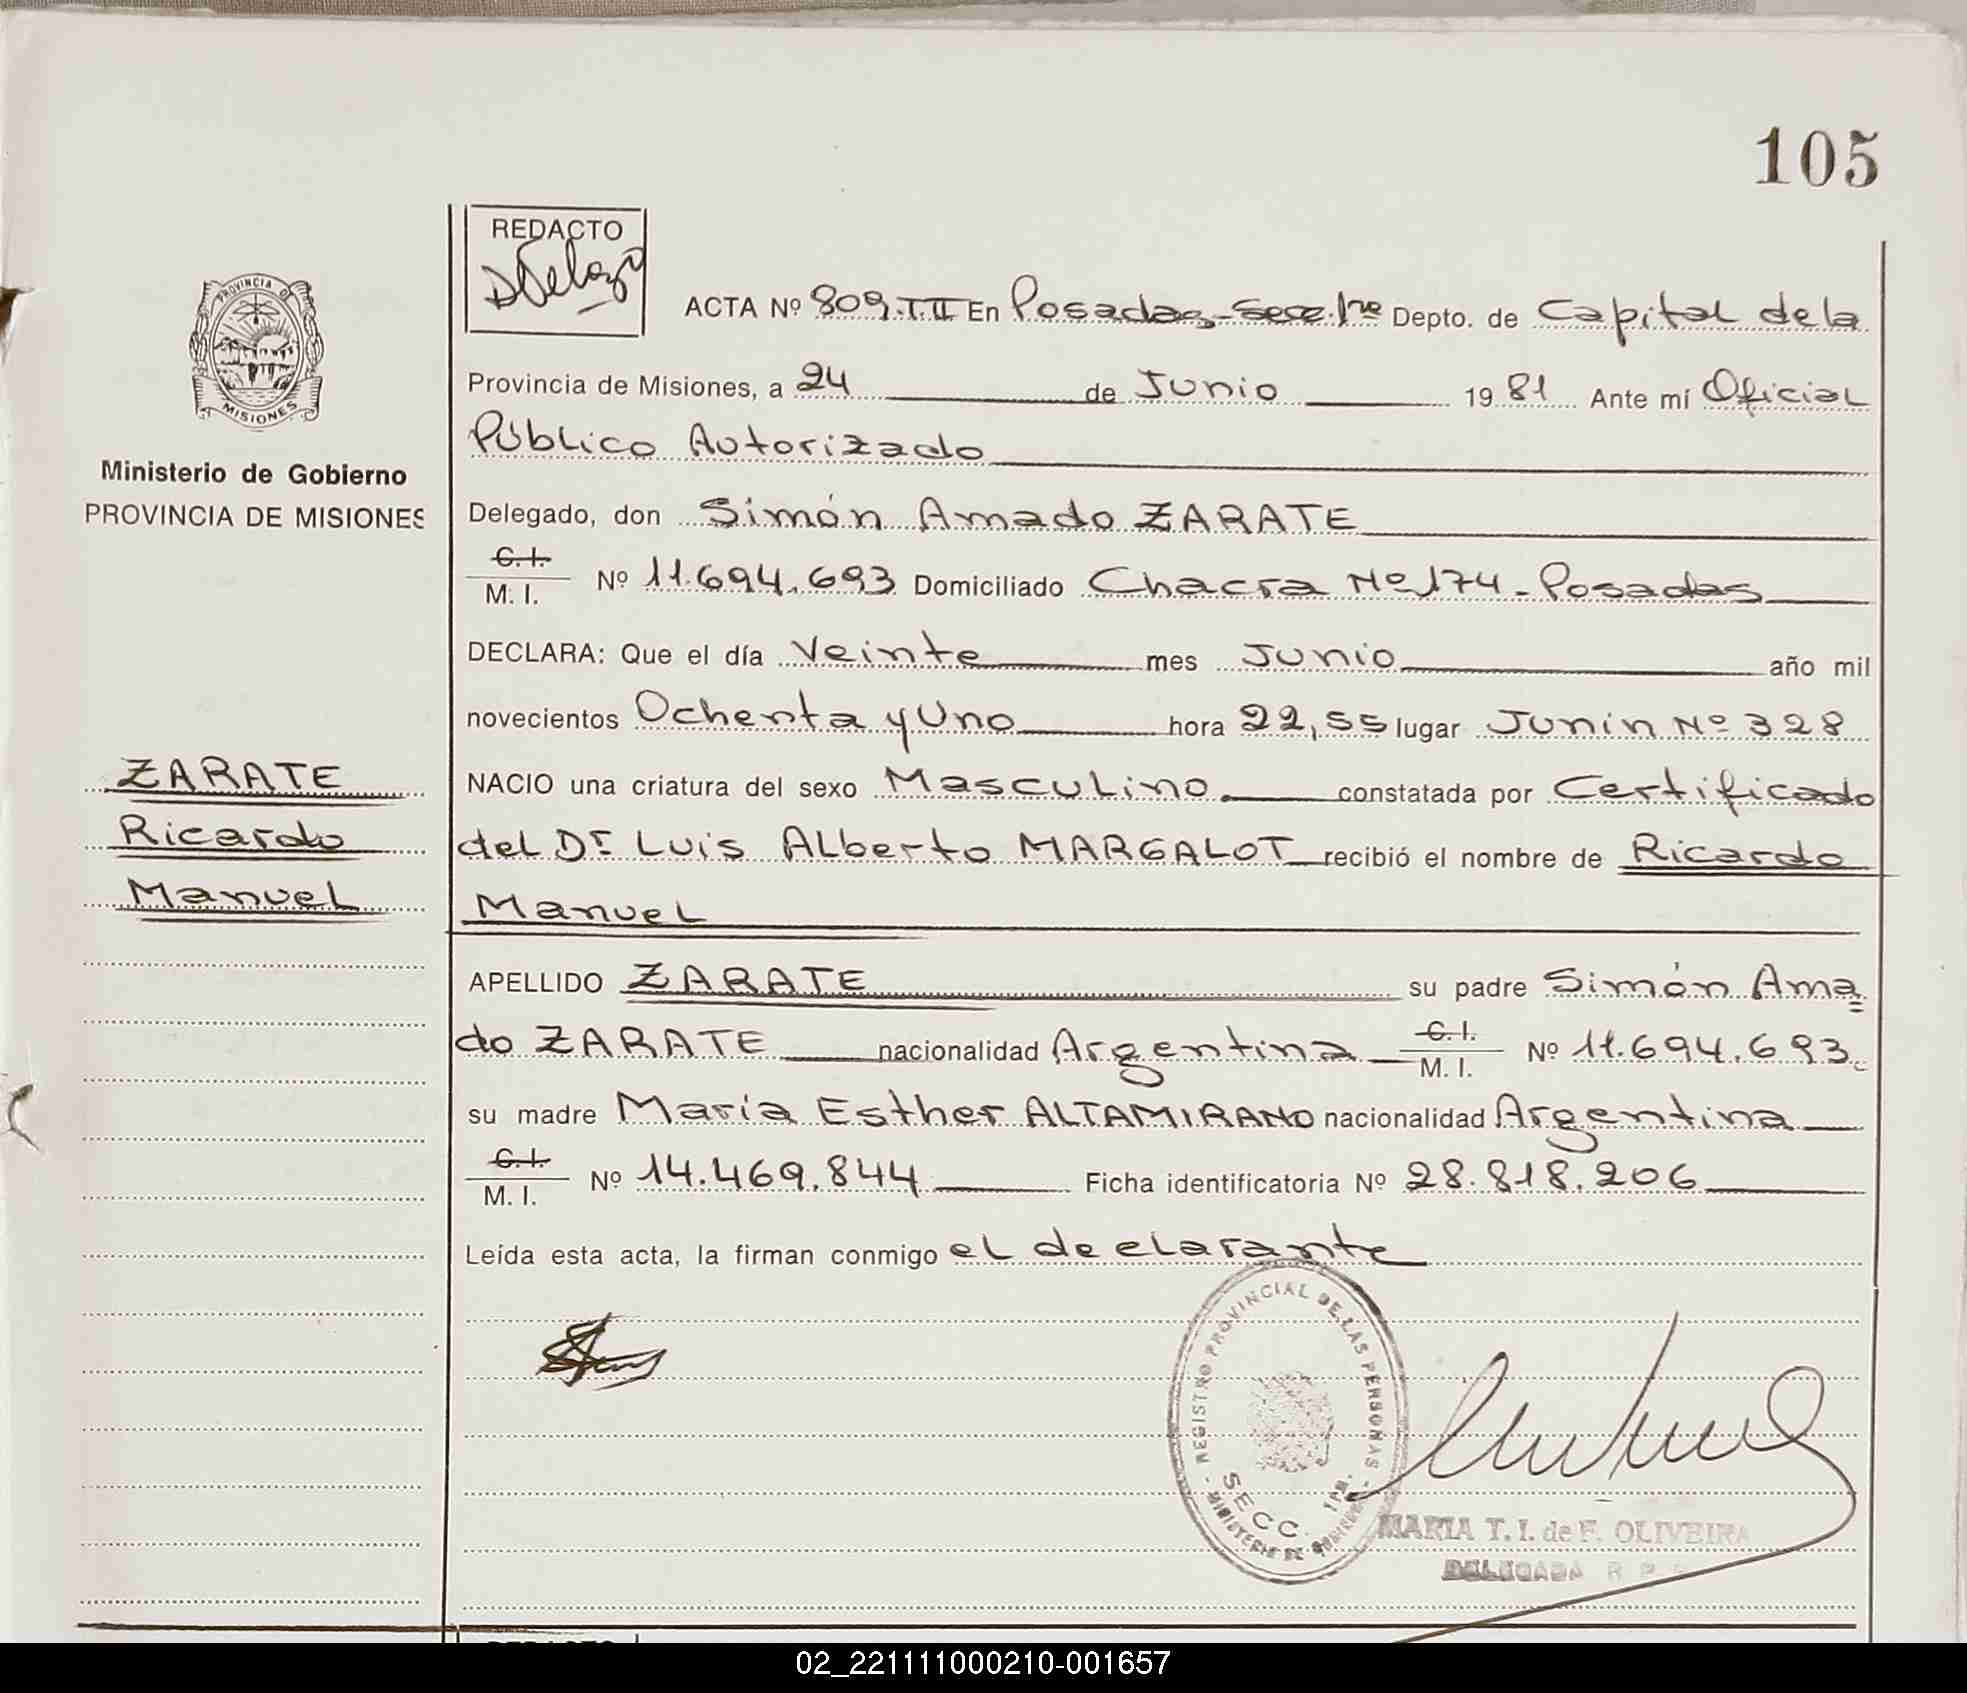 105
REDACTO
PROVINCIA DE
MISIONES
ACTA Nº 809.T.II En Posadas-Secc.1ra Depto. de Capital de la
Provincia de Misiones, a 24 de Junio 1981 Ante mí Oficial
Público Autorizado
Ministerio de Gobierno
PROVINCIA DE MISIONES
Delegado, don Simón Amado ZARATE
C.I.
M.I. Nº 11.694.693 Domiciliado Chacra Nº174-Posadas
DECLARA: Que el día Veinte mes Junio año mil
novecientos Ochenta y Uno hora 22,55 lugar Junin Nº 328
ZARATE
Ricardo
Manuel
NACIO una criatura del sexo Masculino constatada por Certificado
del Dr Luis Alberto MARGALOT recibió el nombre de Ricardo
Manuel
APELLIDO ZARATE su padre Simón Ama=
do ZARATE nacionalidad Argentina C.I.
M.I. Nº 11.694.693
su madre María Esther ALTAMIRANO nacionalidad Argentina
C.I.
M.I. Nº 14.469.844 Ficha identificatoria Nº 28.818.206
Leída esta acta, la firman conmigo el declarante
REGISTRO PROVINCIAL DE LAS PERSONAS
SECC. 1RA.
MINISTERIO DE GOBIERNO
MARIA T. I. de F. OLIVEIRA
DELEGADA R. P.
02_221111000210-001657